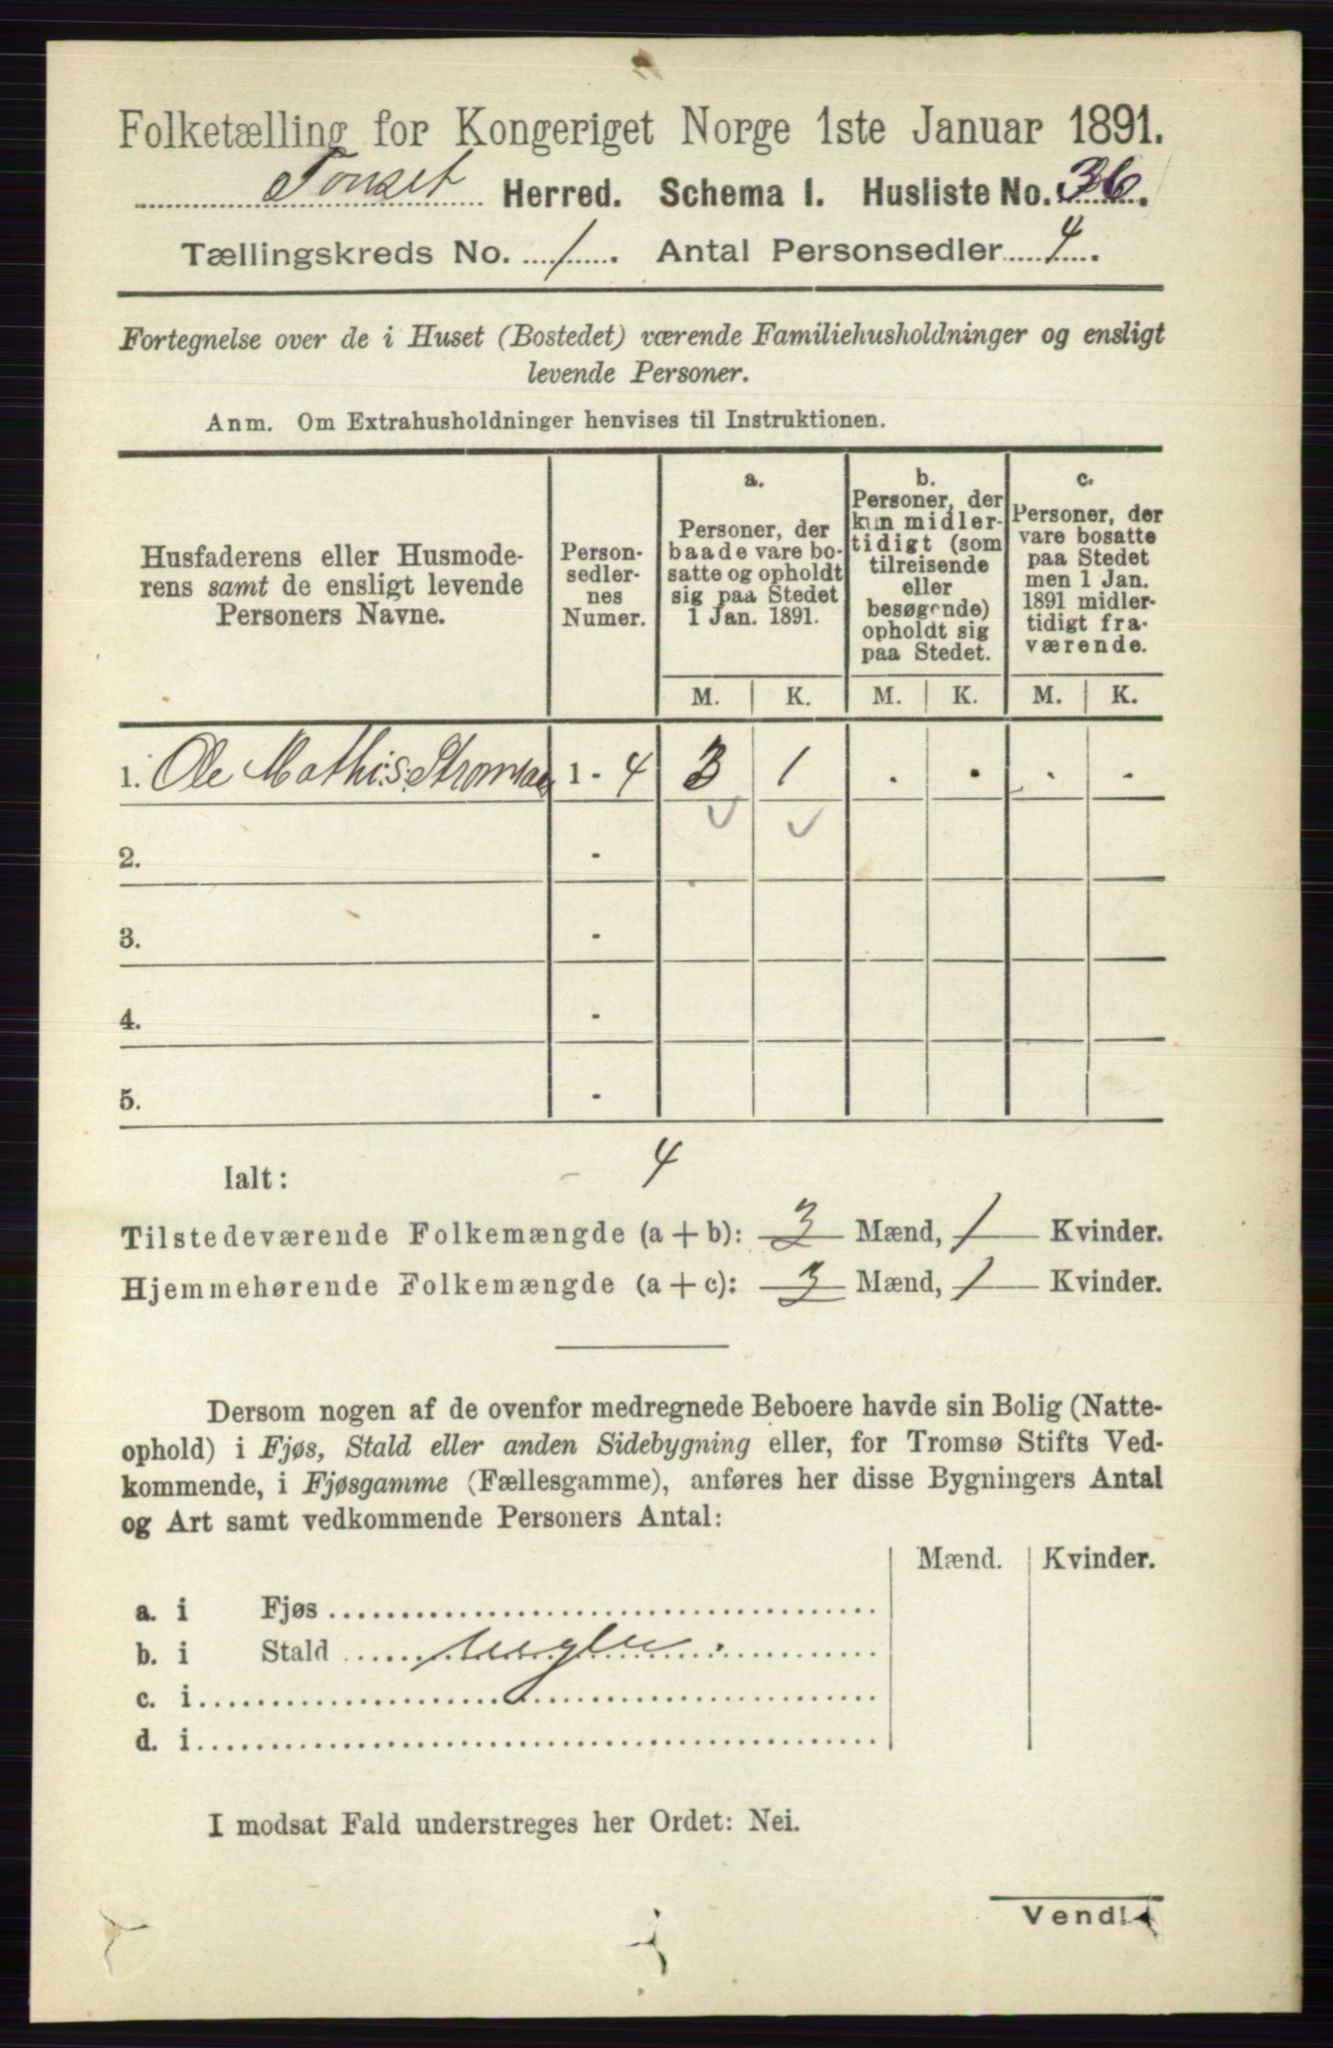 Folketælling for Kongeriget Norge 1ste Januar 1891.
Tonset Herred. Schema 1. Husliste No. 36.
Tællingskreds No. 1. Antal Personsedler 4.
Fortegnelse over de i Huset (Bostedet) værende Familiehusholdninger og ensligt
levende Personer.
Anm. Om Extrahusholdninger henvises til Instruktionen.
Husfaderens eller Husmode-
rens samt de ensligt levende
Personers Navne.
Person-
sedler-
nes
Numer.
a.
Personer, der
baade vare bo-
satte og opholdt
sig paa Stedet
1 Jan. 1891.
b.
Personer, der
kun midler-
tidigt (som
tilreisende
eller
besøgende)
opholdt sig
paa Stedet.
c.
Personer, der
vare bosatte
paa Stedet
men 1 Jan.
1891 midler-
tidigt fra-
værende.
M. K. M. K. M. K.
1. Ole Mathis. 1 - 4 3 1 . . . .
2. -
3. -
4. -
5. -
Ialt: 4
Tilstedeværende Folkemængde (a + b): 3 Mænd, 1 Kvinder.
Hjemmehørende Folkemængde (a + c): 3 Mænd, 1 Kvinder.
Dersom nogen af de ovenfor medregnede Beboere havde sin Bolig (Natte-
ophold) i Fjøs, Stald eller anden Sidebygning eller, for Tromsø Stifts Ved-
kommende, i Fjøsgamme (Fællesgamme), anføres her disse Bygningers Antal
og Art samt vedkommende Personers Antal:
Mænd. Kvinder.
a. i Fjøs
b. i Stald
c. i
d. i
I modsat Fald understreges her Ordet: Nei.
Vend!